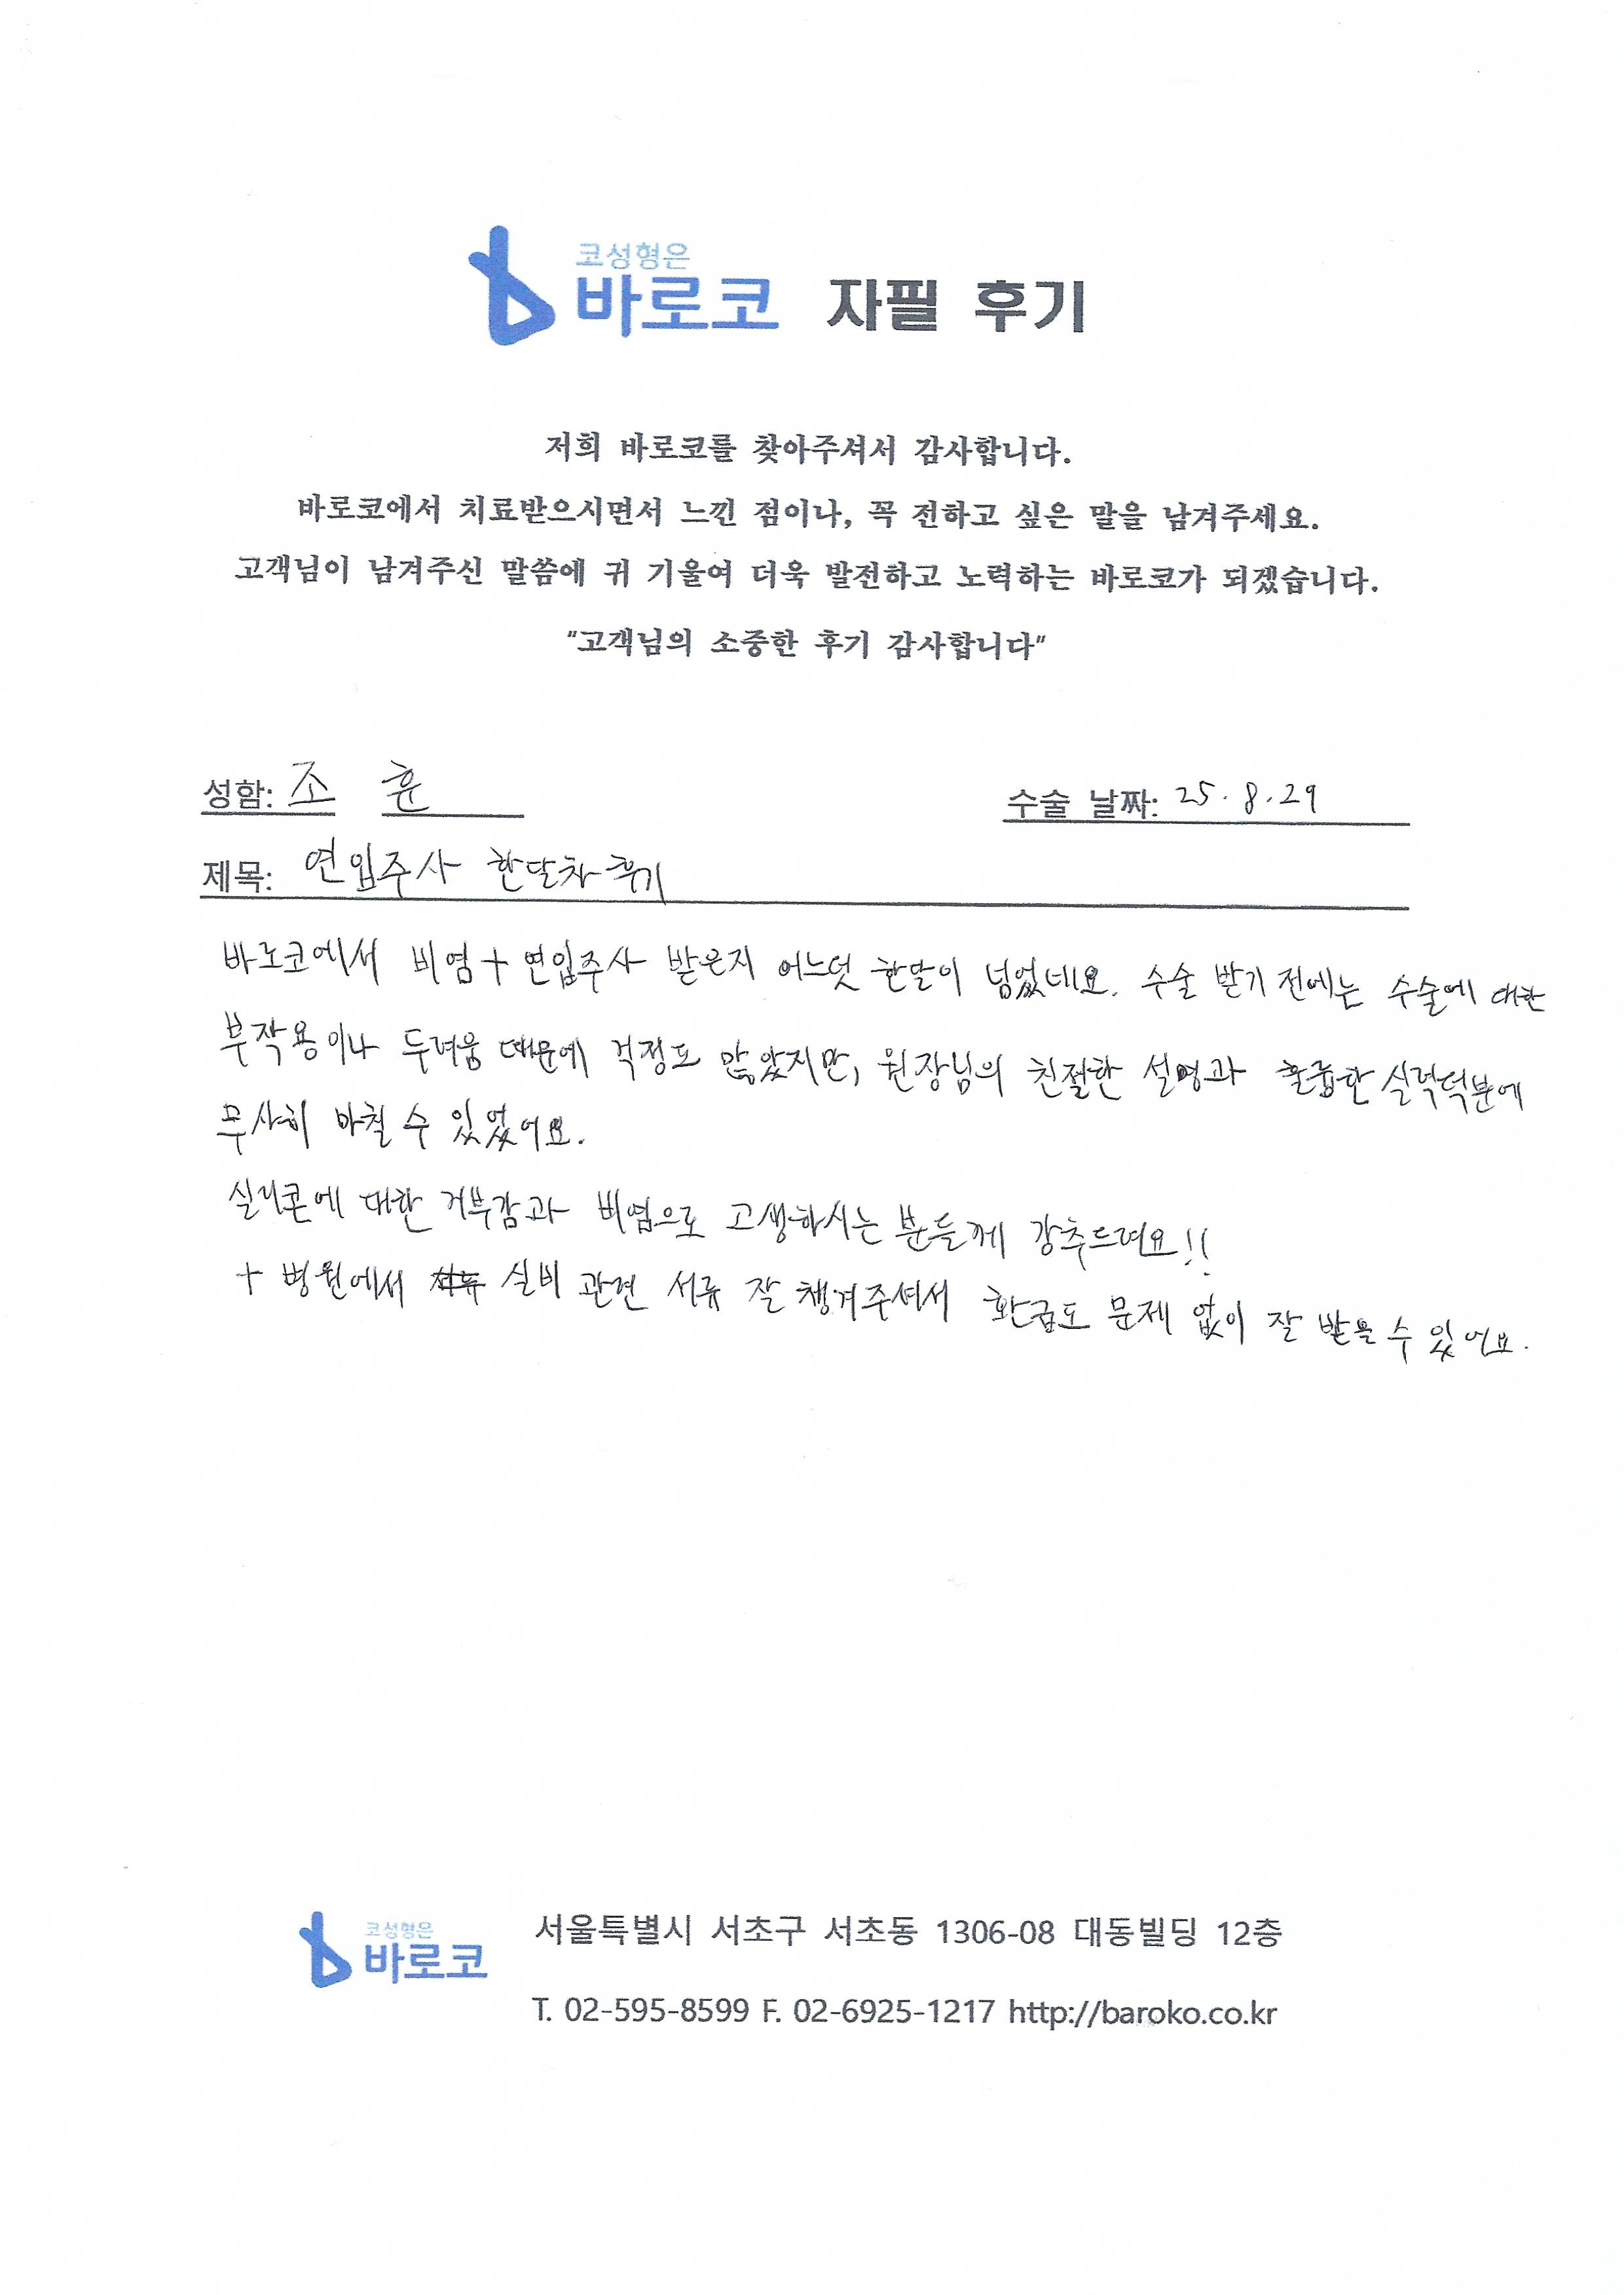 코성형은
바로코 자필 후기
저희 바로코를 찾아주셔서 감사합니다.
바로코에서 치료받으시면서 느낀 점이나, 꼭 전하고 싶은 말을 남겨주세요.
고객님이 남겨주신 말씀에 귀 기울여 더욱 발전하고 노력하는 바로코가 되겠습니다.
"고객님의 소중한 후기 감사합니다"
성함: 조 훈 수술 날짜: 25. 8. 29
제목: 연입주사 한달차 후기
바로코에서 비염+연입주사 받은지 어느덧 한달이 넘었네요. 수술 받기 전에는 수술에 대한
부작용이나 두려움 때문에 걱정도 많았지만, 원장님의 친절한 설명과 훌륭한 실력덕분에
무사히 마칠 수 있었어요.
실리콘에 대한 거부감과 비염으로 고생하시는 분들께 강추드려요!!
+ 병원에서 실비 관련 서류 잘 챙겨주셔서 환급도 문제 없이 잘 받을 수 있어요.
코성형은
바로코
서울특별시 서초구 서초동 1306-08 대동빌딩 12층
T. 02-595-8599 F. 02-6925-1217 http://baroko.co.kr